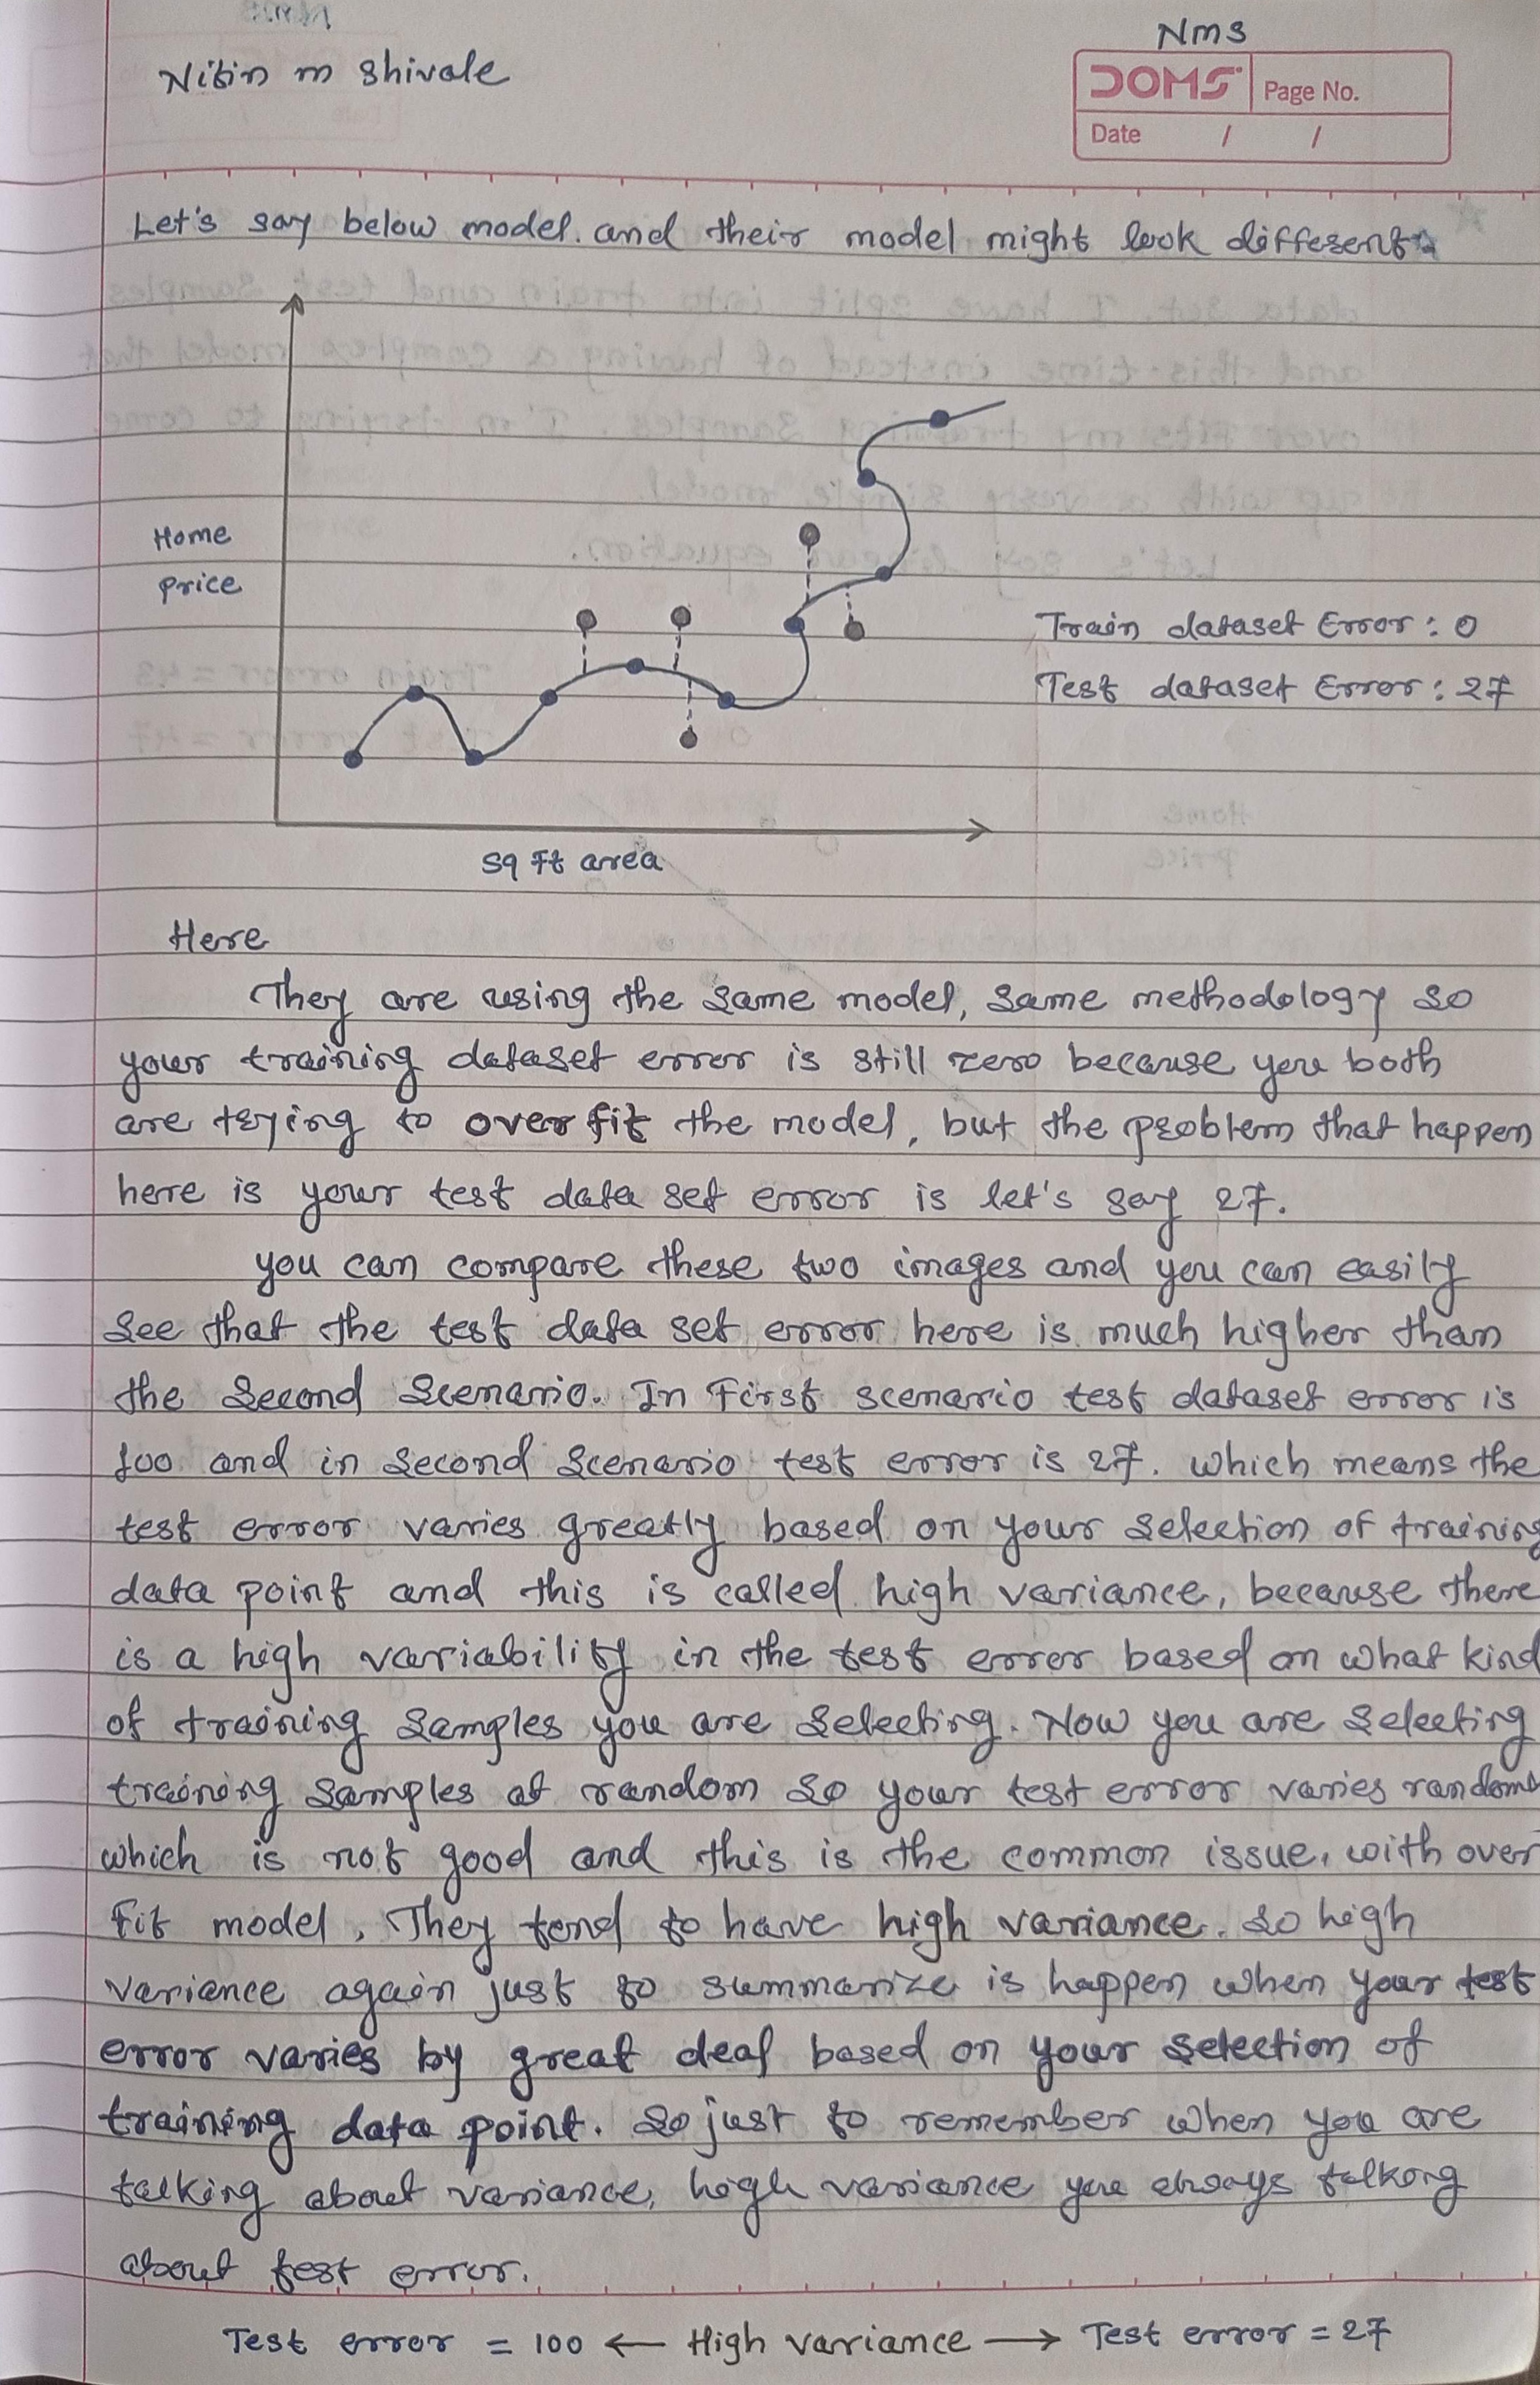 Nms
Nitin m Shivale
DOMS Page No.
Date / /
Let's say below model. and their model might look different.
Home
price
Train dataset Error : 0
Test dataset Error : 27
Sq Ft area
Here
They are using the same model, same methodology so
your training dataset error is still zero because you both
are trying to over fit the model, but the problem that happen
here is your test data set error is let's say 27.
you can compare these two images and you can easily
see that the test data set error here is much higher than
the second scenario. In First scenario test dataset error is
100 and in second scenario test error is 27. which means the
test error varies greatly based on your selection of training
data point and this is called high variance, because there
is a high variability in the test error based on what kind
of training samples you are selecting. Now you are selecting
training samples at random so your test error varies random
which is not good and this is the common issue, with over
fit model. They tend to have high variance. so high
variance again just to summarize is happen when your test
error varies by great deal based on your selection of
training data point. So just to remember when you are
talking about variance, high variance you always talkong
about test error.
Test error = 100 ← High variance → Test error = 27